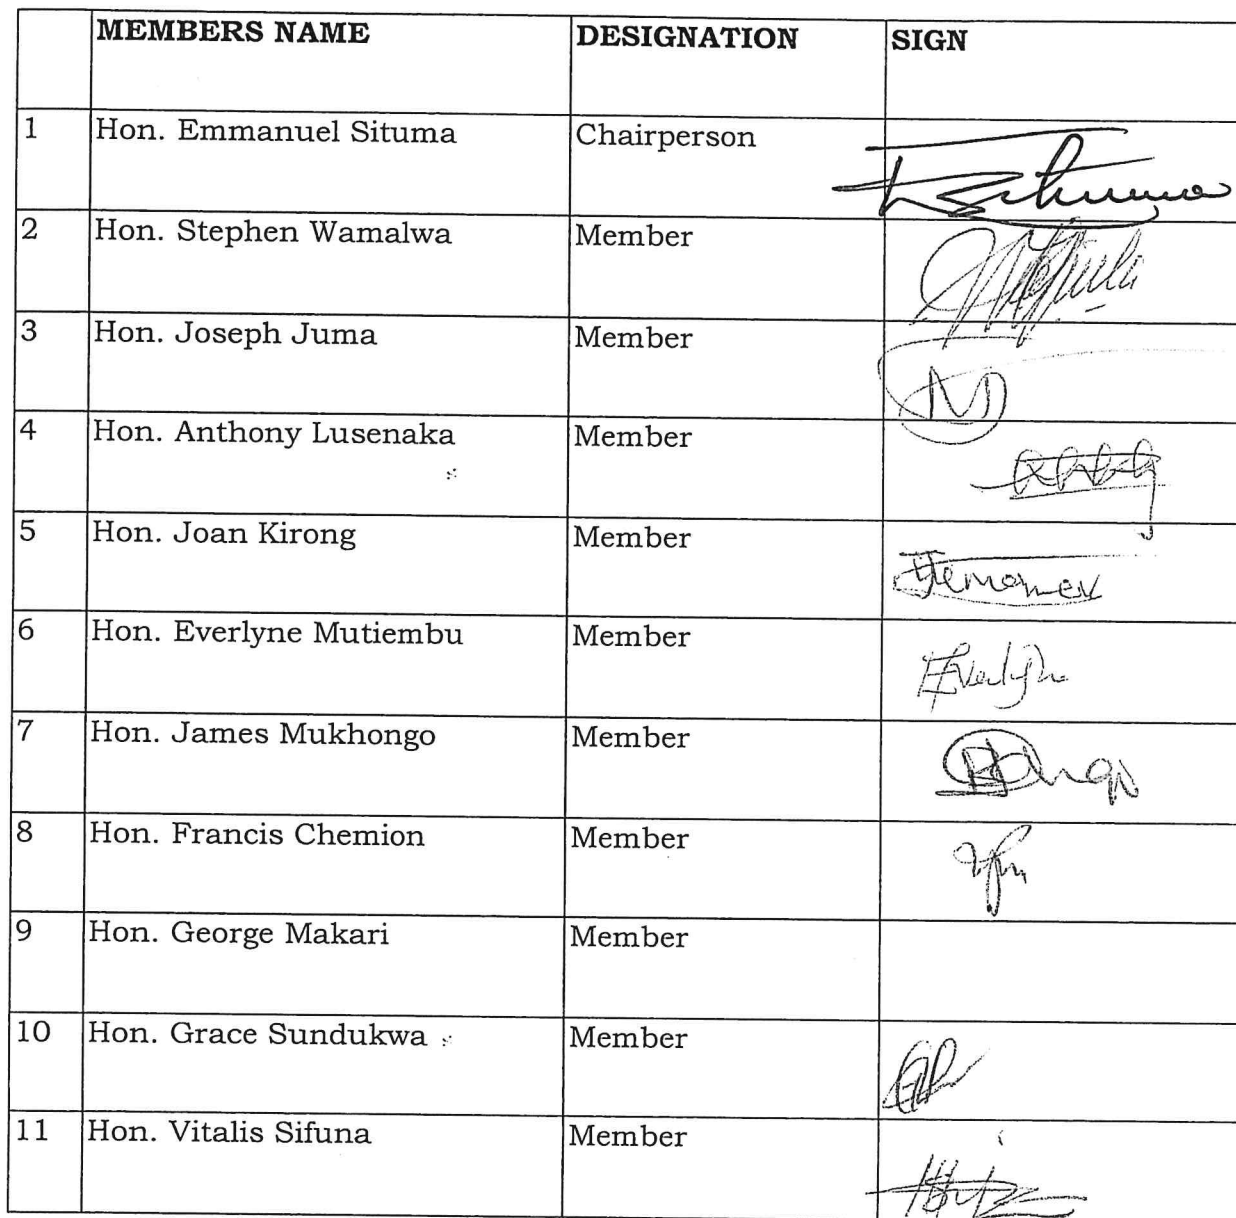 MEMBERS NAME DESIGNATION SIGN
1 Hon. Emmanuel Situma Chairperson
2 Hon. Stephen Wamalwa Member
3 Hon. Joseph Juma Member
4 Hon. Anthony Lusenaka Member
5 Hon. Joan Kirong Member
6 Hon. Everlyne Mutiembu Member
7 Hon. James Mukhongo Member
8 Hon. Francis Chemion Member
9 Hon. George Makari Member
10 Hon. Grace Sundukwa Member
11 Hon. Vitalis Sifuna Member